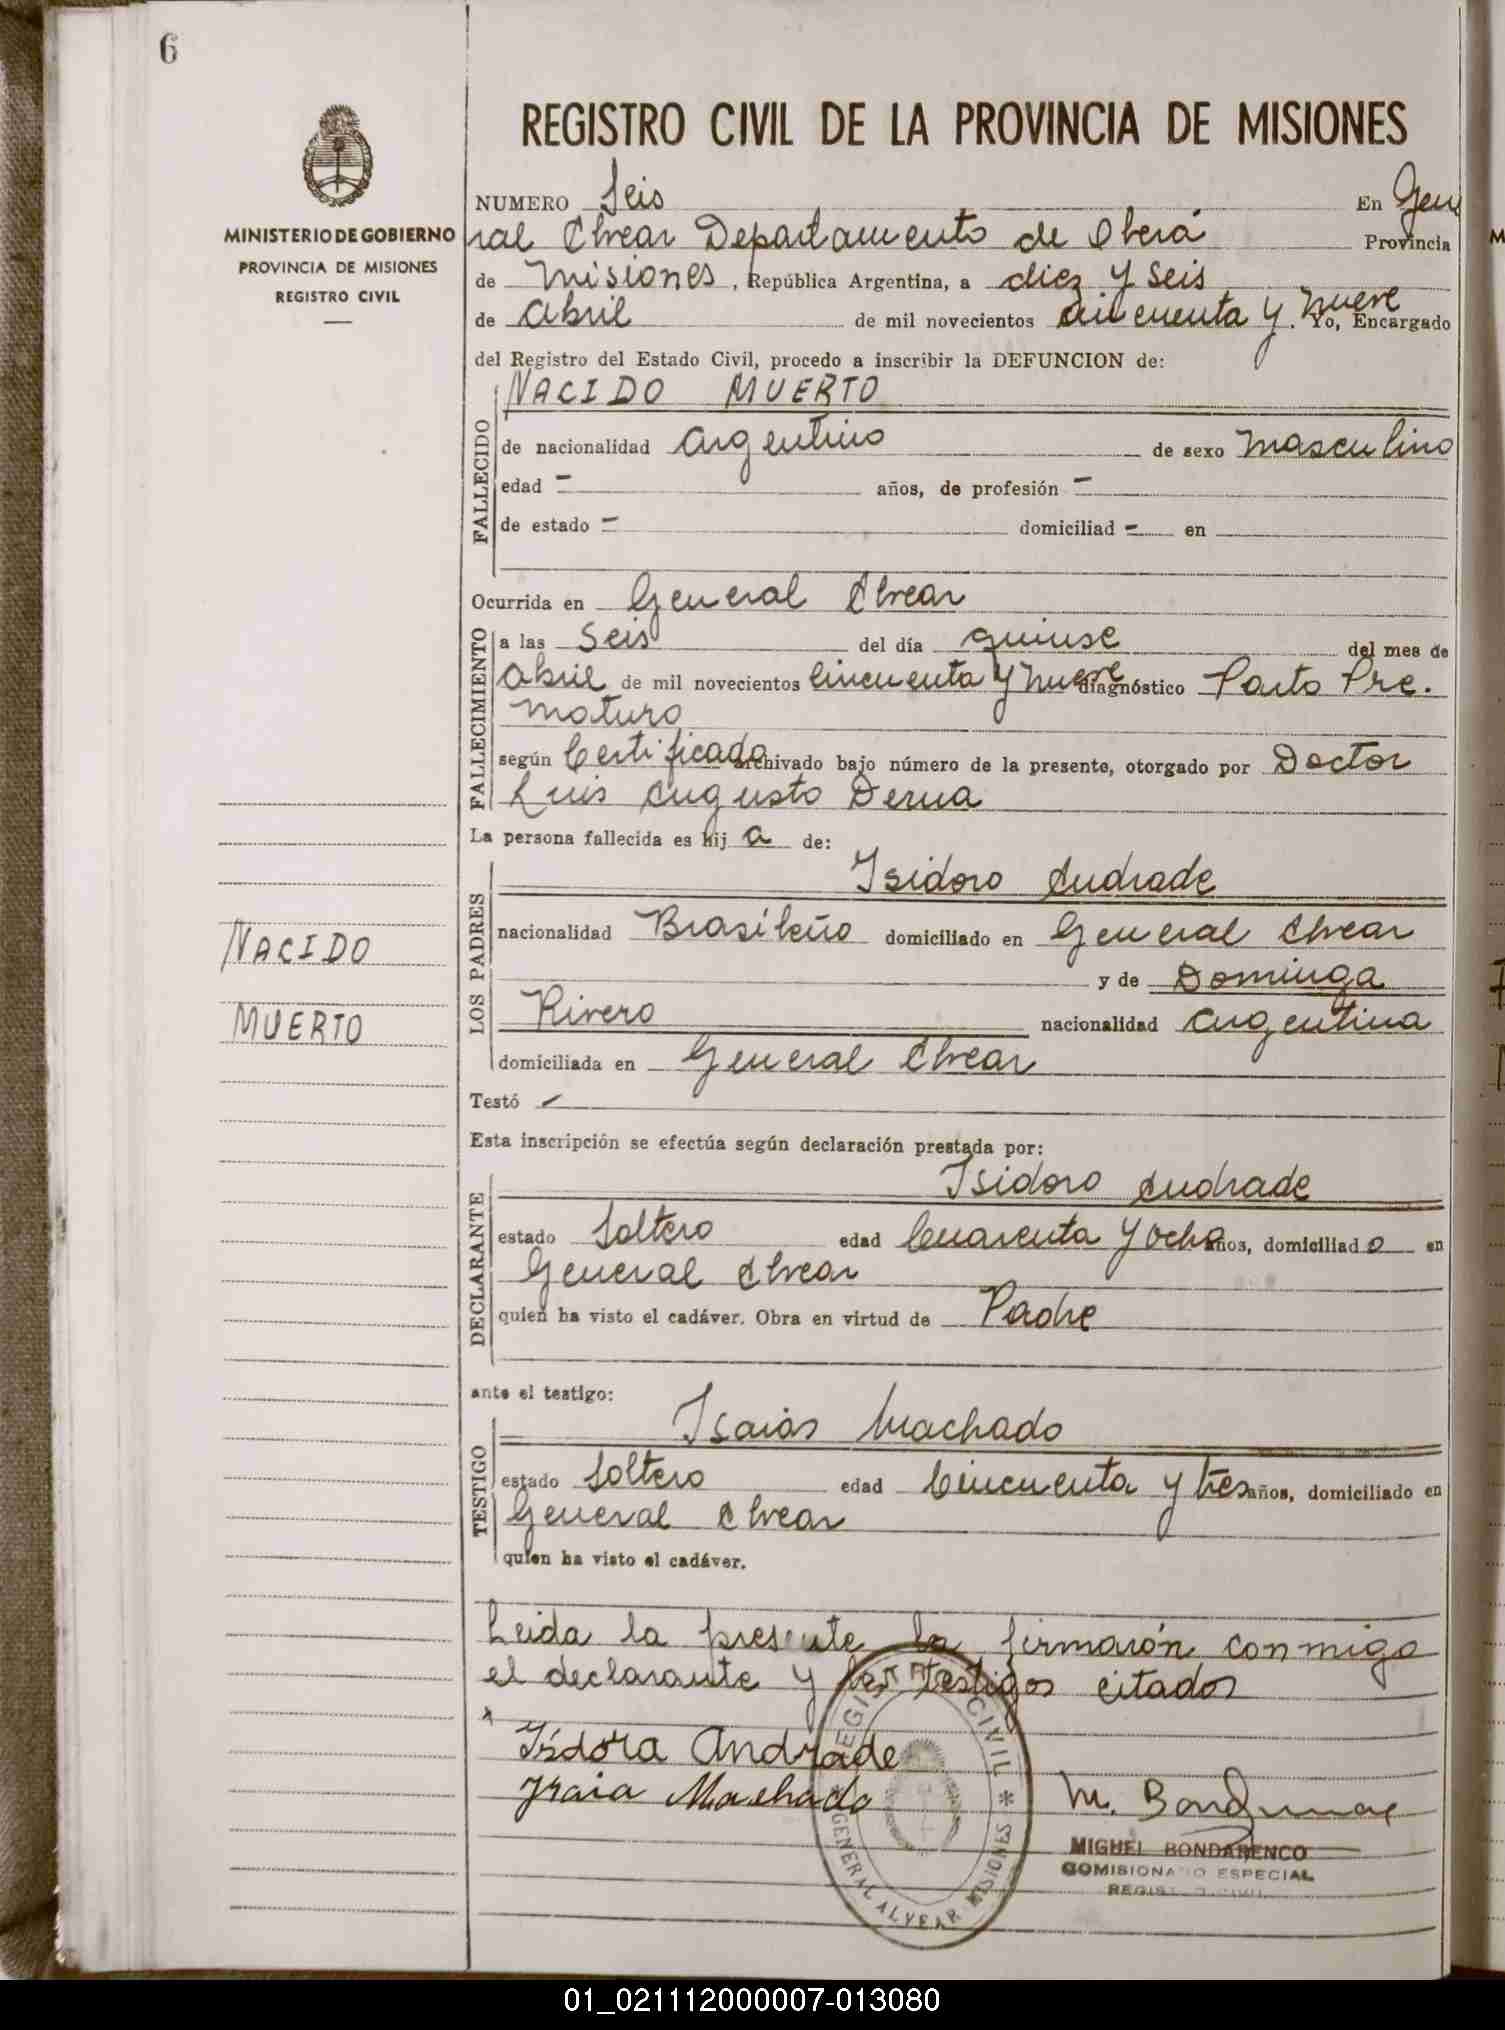 6
MINISTERIO DE GOBIERNO
PROVINCIA DE MISIONES
REGISTRO CIVIL
REGISTRO CIVIL DE LA PROVINCIA DE MISIONES
NUMERO Seis En Gene
ral Alvear Departamento de Oberá Provincia
de Misiones, República Argentina, a diez y seis
de Abril de mil novecientos cincuenta y nueve. Yo, Encargado
del Registro del Estado Civil, procedo a inscribir la DEFUNCION de:
NACIDO MUERTO
FALLECIDO
de nacionalidad argentino de sexo masculino
edad - años, de profesión -
de estado - domiciliad - en
Ocurrida en General Alvear
FALLECIMIENTO
a las Seis del día quinse del mes de
Abril de mil novecientos cincuenta y nueve diagnóstico Parto Pre.
maturo
según Certificado archivado bajo número de la presente, otorgado por Doctor
Luis Augusto Derna
La persona fallecida es hij a de:
LOS PADRES
Isidoro Andrade
nacionalidad Brasileño domiciliado en General Alvear
y de Dominga
Rivero nacionalidad Argentina
domiciliada en General Alvear
NACIDO
MUERTO
Testó -
Esta inscripción se efectúa según declaración prestada por:
DECLARANTE
Isidoro Andrade
estado Soltero edad Cuarenta y ocho años, domiciliad o en
General Alvear
quien ha visto el cadáver. Obra en virtud de Padre
ante el testigo:
TESTIGO
Isaias Machado
estado Soltero edad Cincuenta y tres años, domiciliado en
General Alvear
quien ha visto el cadáver.
Leida la presente la firmarón conmigo
el declarante y los testigos citados
Isdora Andrade
Isaia Machado
REGISTRO CIVIL * GENERAL ALVEAR MISIONES *
M. Bondarenco
MIGUEL BONDARENCO
COMISIONADO ESPECIAL
REGISTRO CIVIL
01_021112000007-013080